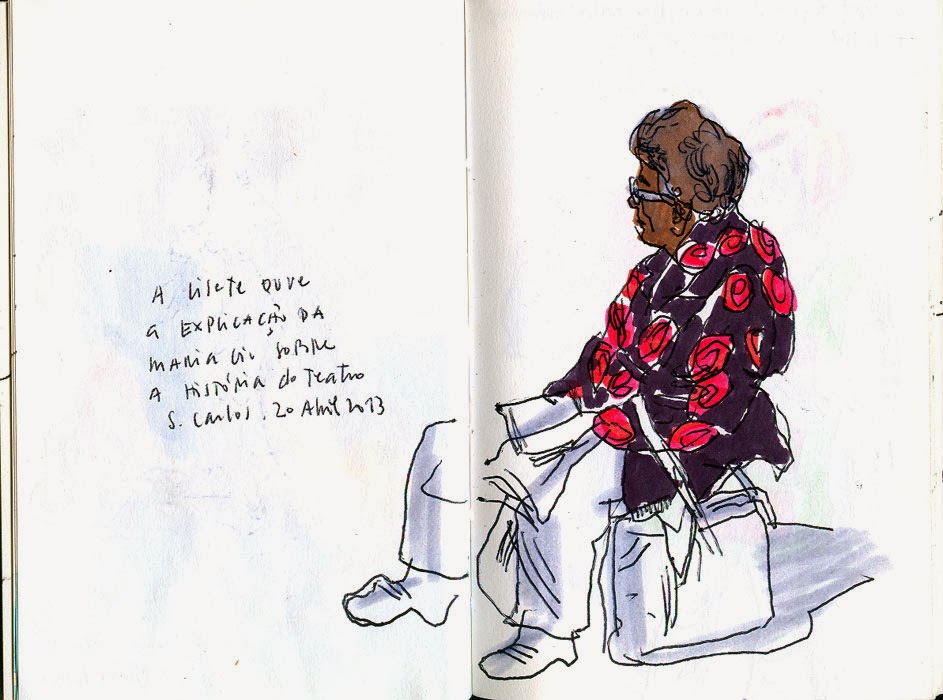 A Lisete ouve
a EXPLICAÇÃO DA
MARIA LIV SOBRE
A HISTÓRIA do Teatro
S. Carlos. 20 Abril 2013